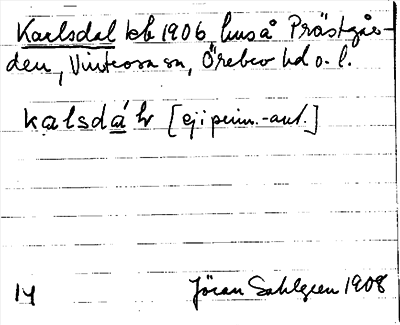 Karlsdal kb 1906 hus å Prästgår-
den, Vintrosa sn, Örebro hd o. l.
kalsdá hr [ej i prim.-aut.]
14 Jöran Sahlgren 1908